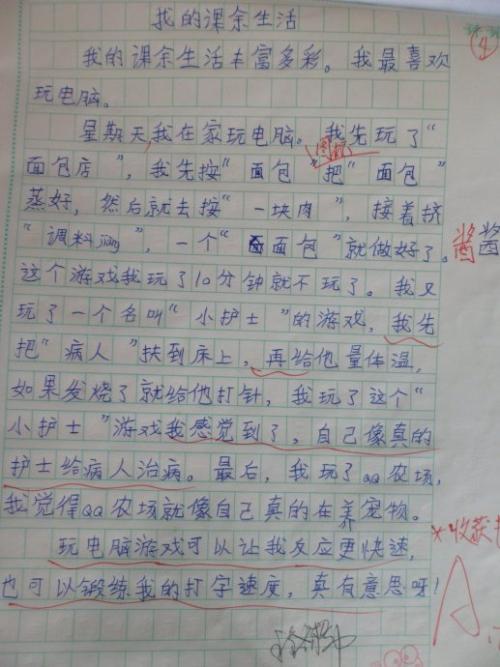 我的课余生活
我的课余生活丰富多彩。我最喜欢
玩电脑。
星期天,我在家玩电脑。我先玩了“
面包店”,我先按“面包”把“面包”
蒸好,然后就去按“一块肉”,接着挤
“调料”,一个“面包”就做好了。酱酱
这个游戏我玩了10分钟就不玩了。我又
玩了一个名叫“小护士”的游戏,我先
把“病人”扶到床上,再给他量体温,
如果发烧了就给他打针,我玩了这个“
小护士”游戏我感觉到了,自己像真的
护士给病人治病。最后,我玩了QQ农场,
我觉得QQ农场就像自己真的在养宠物。
玩电脑游戏可以让我反应更快速,*收获
也可以锻炼我的打字速度,真有意思呀!
A